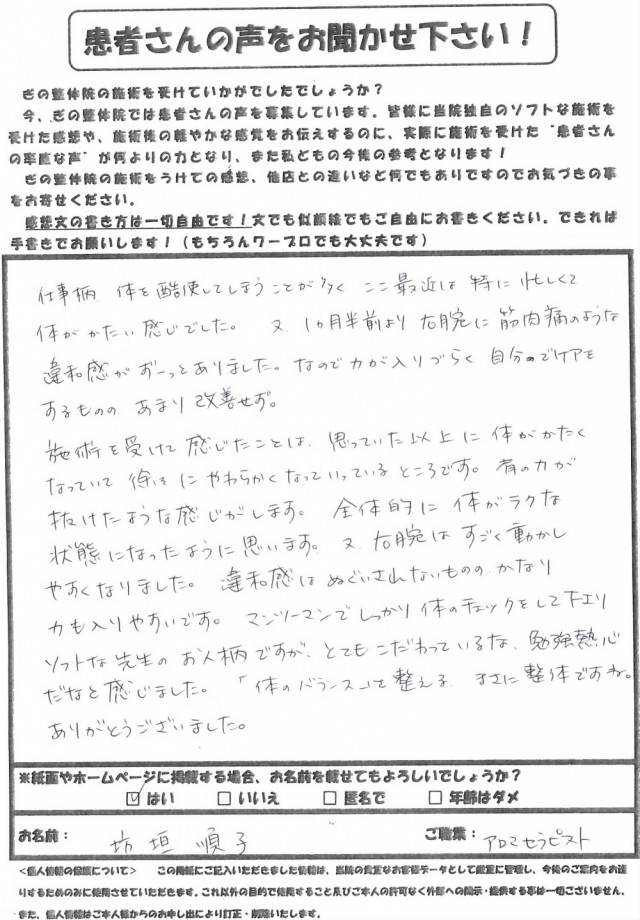 患者さんの声をお聞かせ下さい！
ぎの整体院の施術を受けていかがでしたでしょうか？
今、ぎの整体院では患者さんの声を募集しています。皆様に当院独自のソフトな施術を
受けた感想や、施術後の軽やかな感覚をお伝えするのに、実際に施術を受けた“患者さん
の率直な声”が何よりの力となり、また私どもの今後の参考となります！
ぎの整体院の施術をうけての感想、他店との違いなど何でもありですのでお気づきの事
をお寄せください。
感想文の書き方は一切自由です！文でも似顔絵でもご自由にお書きください。できれば
手書きでお願いします！（もちろんワープロでも大丈夫です）
仕事柄、体を酷使してしまうことが多く ここ最近は特に忙しくて
体がかたい感じでした。 又、1ヵ月半前より 右腕に筋肉痛のような
違和感がずーっとありました。なので力が入りづらく 自分でケアを
するものの、あまり改善せず。
施術を受けて感じたことは、思っていた以上に体がかたく
なっていて 徐々にやわらかくなっていっているところです。肩の力が
抜けたような感じがします。 全体的に体がラクな
状態になったように思います。又、右腕はすごく動かし
やすくなりました。 違和感はぬぐいきれないものの、かなり
力も入りやすいです。 マンツーマンでしっかり体のチェックをして下さり
ソフトな先生のお人柄ですが、とてもこだわっているな、勉強熱心
だなと感じました。「体のバランス」を整える、まさに整体ですね。
ありがとうございました。
※紙面やホームページに掲載する場合、お名前を載せてもよろしいでしょうか？
☑はい □いいえ □匿名で □年齢はダメ
お名前： 坊垣 順子 ご職業： アロマセラピスト
<個人情報の保護について> この用紙にご記入いただきました情報は、当院の貴重なお客様データとして厳重に管理し、今後のご案内をお送
りするためのみに使用させていただきます。これ以外の目的で使用すること及びご本人の許可なく外部への開示・提供する事は一切ございません。
また、個人情報はご本人様からのお申し出により訂正・削除いたします。